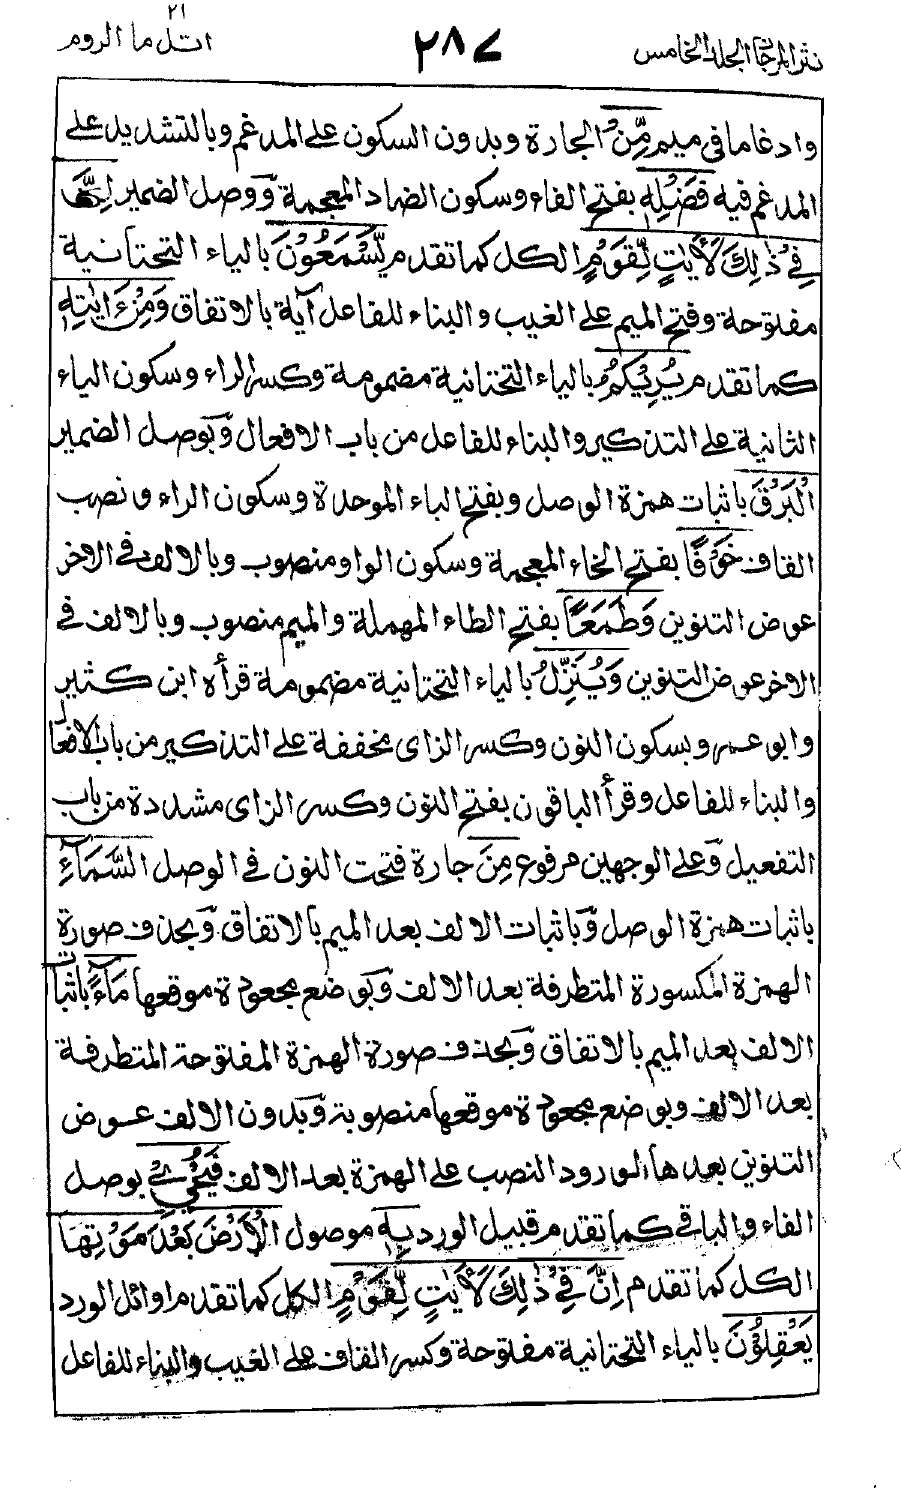 نثر المرجان المجلد الخامس
٢٨٧
٢١
اتل ما الروم
وادغاما فى ميم مِّنْ الجارة وبدون السكون على المدغم وبالتشديد على
المدغم فيه فَضْلِهِ بفتح الفاء وسكون الضاد المعجمة ووصل الضمير اِنَّ
فِىْ ذٰلِكَ لَاٰيٰتٍ لِّقَوْمٍ الكل كما تقدم يَّسْمَعُوْنَ بالياء التحتانية
مفتوحة وفتح الميم على الغيب والبناء للفاعل آية بالاتفاق وَمِنْ ءَايٰتِهِ
كما تقدم يُرِيْكُمُ بالياء التحتانية مضمومة وكسر الراء وسكون الياء
الثانية على التذكير والبناء للفاعل من باب الافعال وبوصل الضمير
الْبَرْقَ باثبات همزة الوصل وبفتح الباء الموحدة وسكون الراء ونصب
القاف خَوْفًا بفتح الخاء المعجمة وسكون الواو منصوب وبالالف فى الاخر
عوض التنوين وَطَمَعًا بفتح الطاء المهملة والميم منصوب وبالالف فى
الاخر عوض التنوين وَيُنَزِّلُ بالياء التحتانية مضمومة قرأه ابن كثير
وابو عمرو بسكون النون وكسر الزاى مخففة على التذكير من باب الافعال
والبناء للفاعل وقرأ الباقون بفتح النون وكسر الزاى مشددة من باب
التفعيل وعلى الوجهين مرفوع مِنَ جارة فتحت النون فى الوصل السَّمَآءِ
باثبات همزة الوصل وباثبات الالف بعد الميم بالاتفاق وبحذف صورة
الهمزة المكسورة المتطرفة بعد الالف وبوضع مجعودة موقعها مَآءً باثبات
الالف بعد الميم بالاتفاق وبحذف صورة الهمزة المفتوحة المتطرفة
بعد الالف وبوضع مجعودة موقعها منصوبة وبدون الالف عوض
التنوين بعدها لورود النصب على الهمزة بعد الالف فَيُحْىٖ بوصل
الفاء والباقى كما تقدم قبيل الورد بِهِ موصول الْاَرْضَ بَعْدَ مَوْتِهَا
الكل كما تقدم اِنَّ فِىْ ذٰلِكَ لَاٰيٰتٍ لِّقَوْمٍ الكل كما تقدم اوائل الورد
يَعْقِلُوْنَ بالياء التحتانية مفتوحة وكسر القاف على الغيب والبناء للفاعل